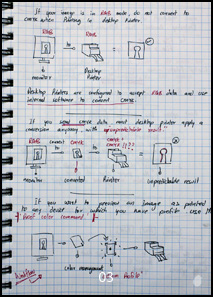 If your image is in RGB mode, do not convert to
CMYK when Printing in desktop Printer.
RGB
RGB
to
=
monitor
Desktop
Printer
Desktop Printers are configured to accept RGB data and use
internal software to convert CMYK.
If you send CMYK data most desktop printer apply a
conversion anyway, with unpredictable result.
RGB
convert
CMYK
to
CMYK
to
=
monitor
converted
Printer
unpredictable result
If you want to preview an image as printed
to any device for which you have profile use the
Proof color command.
to
color management
03
Profile